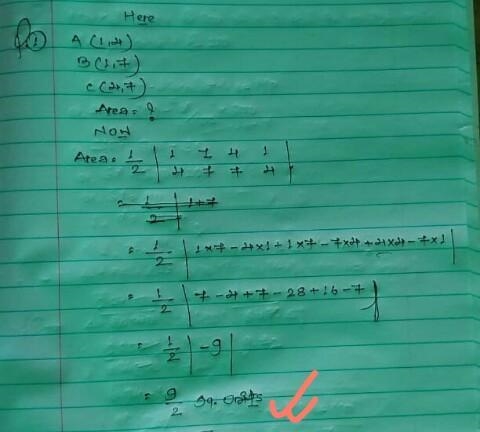 Here
Q.1 A (1,4)
B (1,7)
C (4,7)
Area = ?
Now
Area = 1/2 | 1 1 4 1 |
| 4 7 7 4 |
= 1/2 | 1+7
= 1/2 | 1×7 - 4×1 + 1×7 - 7×4 + 4×4 - 7×1 |
= 1/2 | 7 - 4 + 7 - 28 + 16 - 7 |
= 1/2 | -9 |
= 9/2 Sq. units